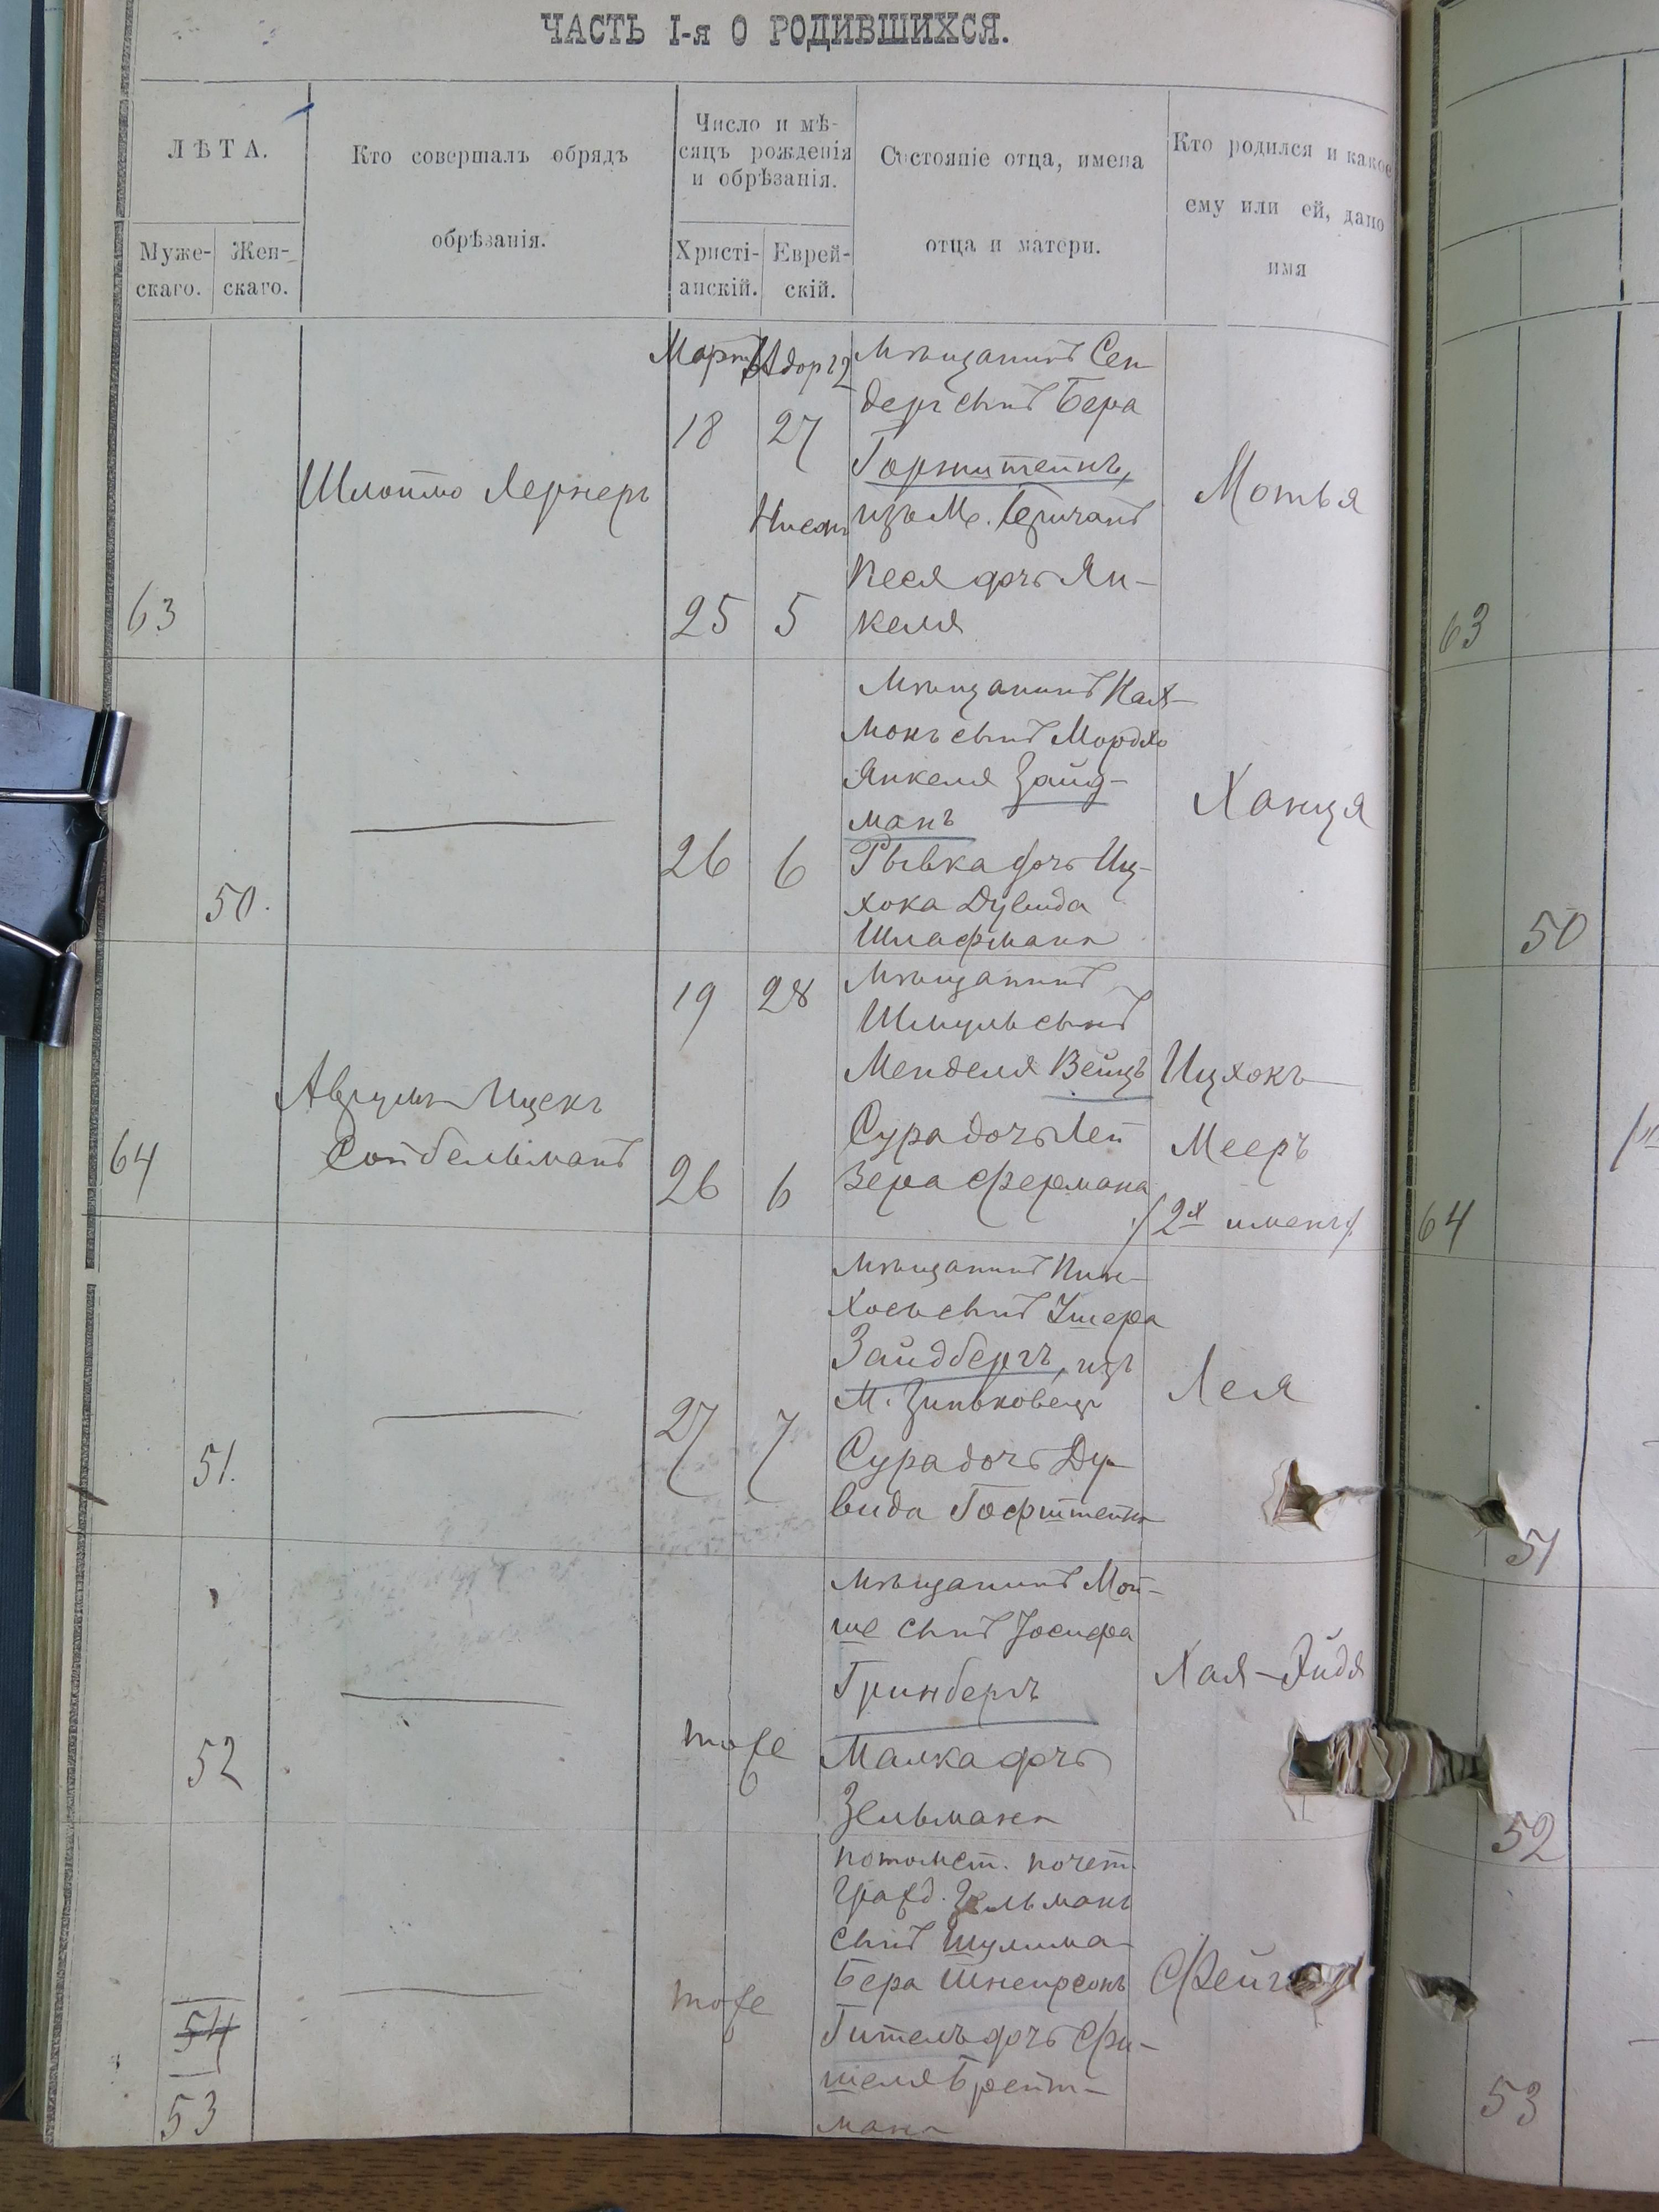 ЧАСТЬ I-я О РОДИВШИХСЯ.
ЛѢТА.
Муже-
скаго.
Жен-
скаго.
Кто совершалъ обрядъ
обрѣзанія.
Число и мѣ-
сяцъ рожденія
и обрѣзанія.
Христі-
анскій.
Еврей-
скій.
Состояніе отца, имена
отца и матери.
Кто родился и какое
ему или ей, дано
имя
63
Шлоймо Лернеръ
Мартъ
18
25
27
Нисанъ
5
Мѣщанинъ Сен-
деръ сынъ Бера
изъ М.
Песя дочь Ян-
келя
Мотья
63
50.
26
6
Мѣщанинъ Кал-
монъ сынъ Мордко
Янкеля Зайд-
манъ
Рывка дочь Иц-
хока Дувида
Шлафмана
Ханця
50
64
Ицекъ
Сойбельманъ
19
28
26
6
Мѣщанинъ
Шмуль сынъ
Менделя Вейцъ
Сура дочь Лей
зера Фермана
Ицхокъ
Мееръ
/2х именъ/
64
51.
27
7
Мѣщанинъ Пин-
хосъ сынъ Ушера
Зайдбергъ, изъ
М. Зиньковецъ
Сура дочь Ду-
вида Гофштейна
Лея
51
52
тоже
Мѣщанинъ Мой-
ше сынъ Іосифа
Гринбергъ
Малка дочь
Зельмана
Хая-
52
54
53
тоже
потомст. почет.
гражд. Зельманъ
сынъ Шулима
Бера Шнеирсонъ
Гитель дочь Фи-
шеля Брейт-
мана
53